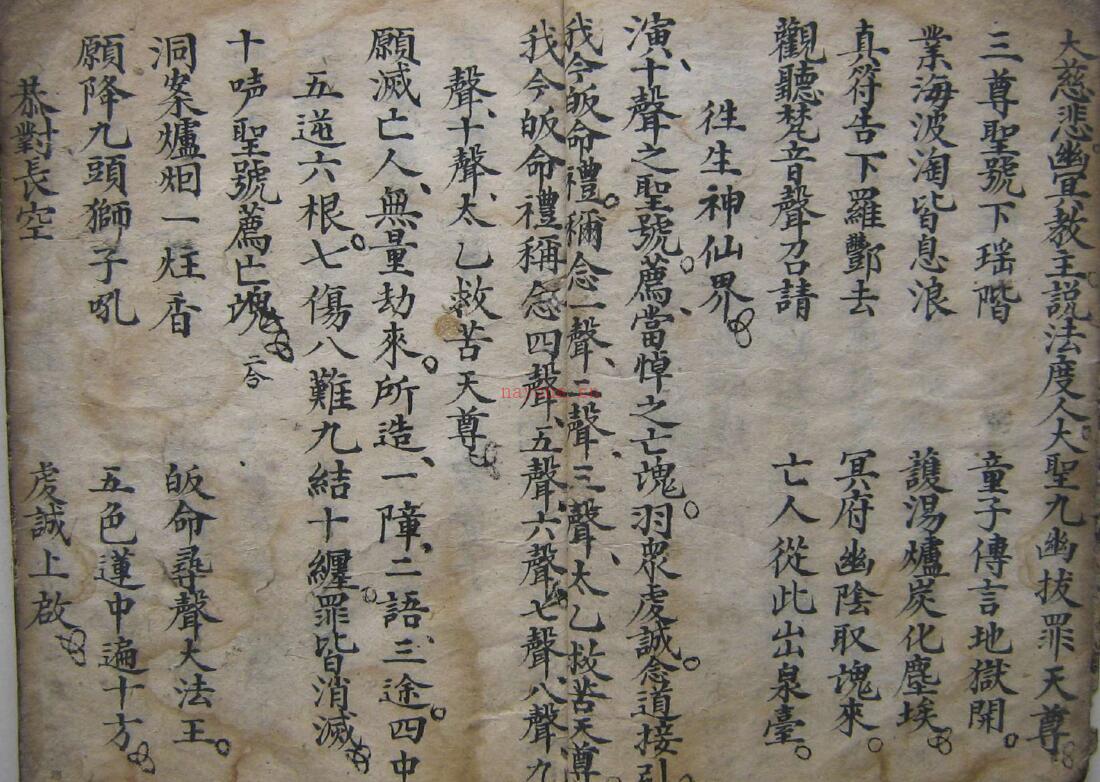 大慈悲幽冥教主説法度人大聖九幽拔罪天尊
三尊聖號下瑶階 童子傳言地獄開
業海波淘皆息浪 護湯爐炭化塵埃
真符告下羅酆去 冥府幽陰取魂來
觀聽梵音聲召請 亡人從此出泉臺
徃生神仙界
演十聲之聖號薦當悼之亡魂羽衆虔誠念道接引
我今皈命禮稱念一聲二聲三聲太乙救苦天尊
我今皈命禮稱念四聲五聲六聲七聲八聲九
聲十聲太乙救苦天尊
願滅亡人無量劫來所造一障二語三途四中
五逆六根七傷八難九結十纏罪皆消滅
十声聖號薦亡魂 二合
洞案爐焰一炷香 皈命尋聲大法王
願降九頭獅子吼 五色蓮中遍十方
恭對長空 虔誠上啟